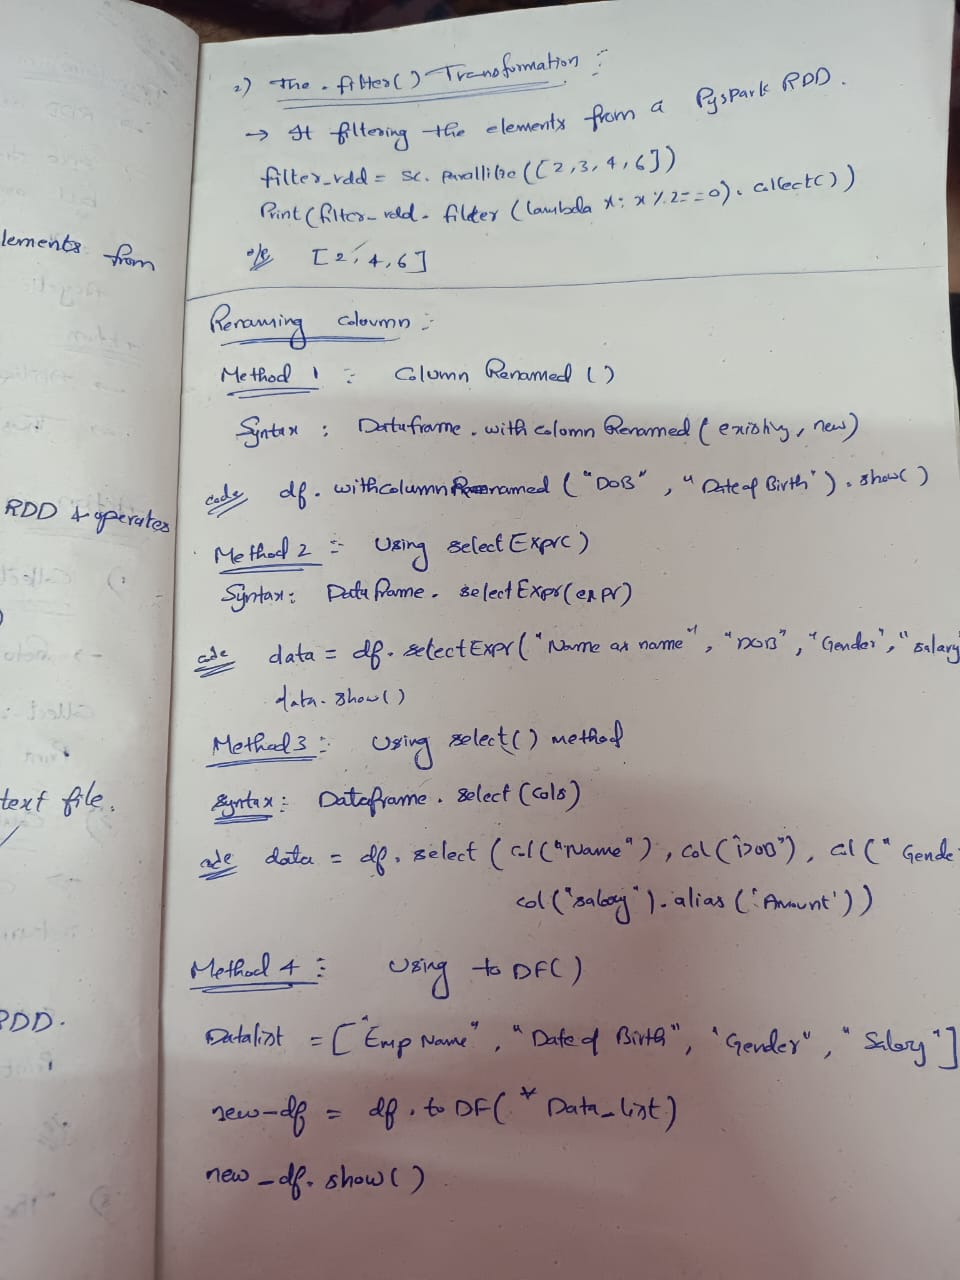 2) The .filter() Transformation :-
→ It filtering the elements from a Pyspark RDD.
filter_rdd = sc. parallilze ([2,3,4,6])
Print (filter_rdd. filter (lambda x: x % 2 == 0). collect())
o/p [2, 4, 6]
Renaming coloumn :-
Method 1 :- Column Renamed ()
Syntax : Dataframe . with colomn Renamed ( existing, new)
code df. withcolumn Renamed ("DOB", "Date of Birth"). show()
Method 2 :- Using select Expr()
Syntax: Data frame. select Expr(expr)
code data = df. select Expr ("Name as name", "DOB", "Gender", "salary
data. show()
Method 3 :- Using select() method
Syntax: Dataframe. select (cols)
code data = df. select (col("Name"), col("DOB"), col("Gende
col("salary"). alias ('Amount'))
Method 4 :- Using to DF()
Datalist = ["Emp Name", "Date of Birth", "Gender", "Salary"]
new_df = df. to DF( * Data_list)
new_df. show()
lements from
RDD & operates
text file.
RDD.